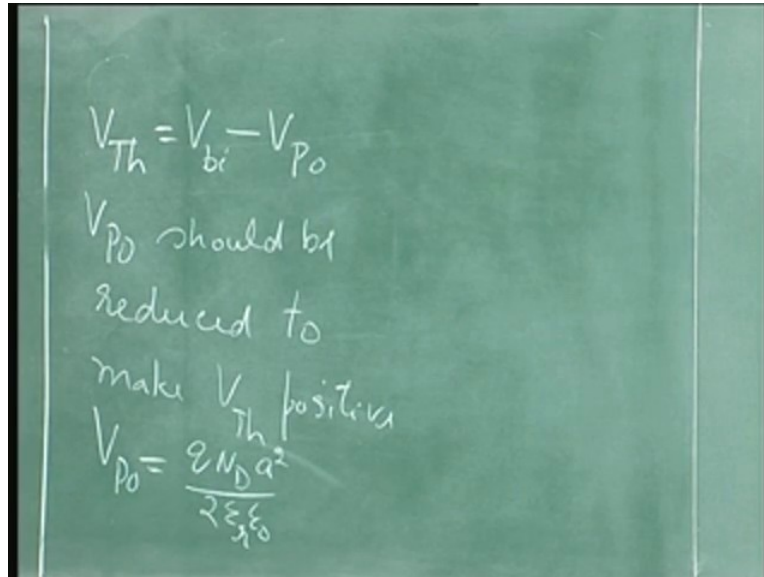 V_Th = V_bi - V_P0
V_P0 should be
reduced to
make V_Th positive
V_P0 = q N_D a² / 2 ε_r ε_0